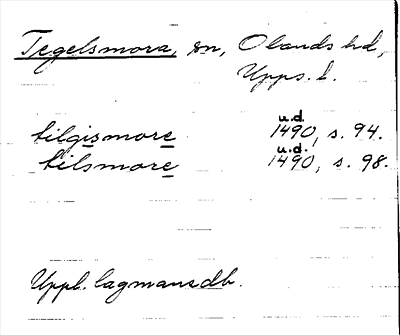 Tegelsmora, sn, Olands hd,
Upps. l.
tilgismore u.d. 1490, s. 94.
tilsmore u.d. 1490, s. 98.
Uppl. lagmansdb.